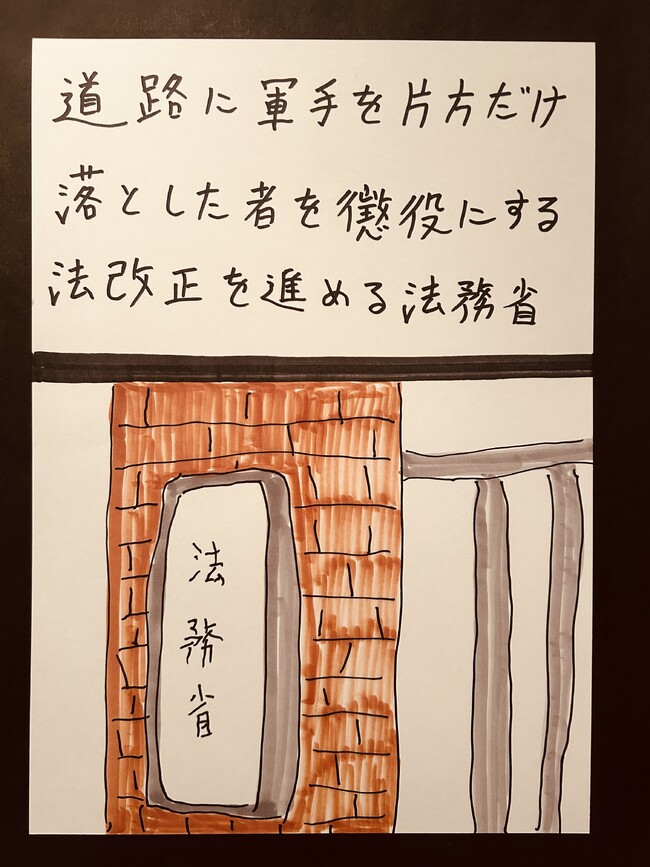 道路に軍手を片方だけ
落とした者を懲役にする
法改正を進める法務省
法務省